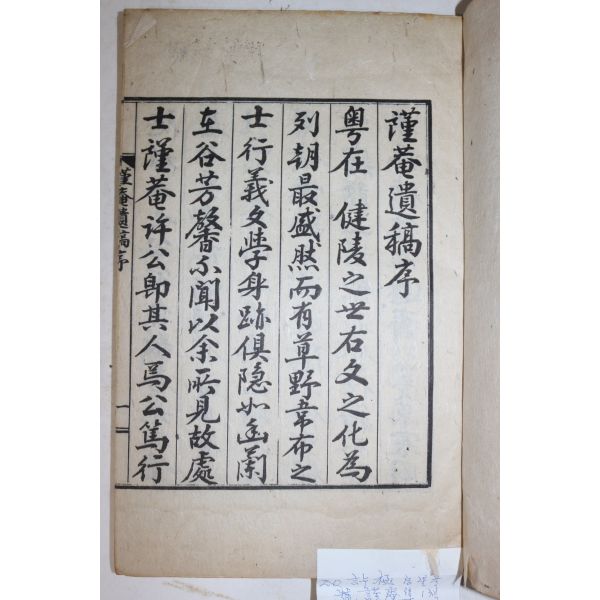 謹菴遺稿序
粤在 健陵之世右文之化為
列朝最盛然而有草野韋布之
士行義文學身跡俱隐如幽蘭
在谷芳馨不聞以余所見故處
士謹菴許公卽其人焉公篤行
謹菴遺稿序
一